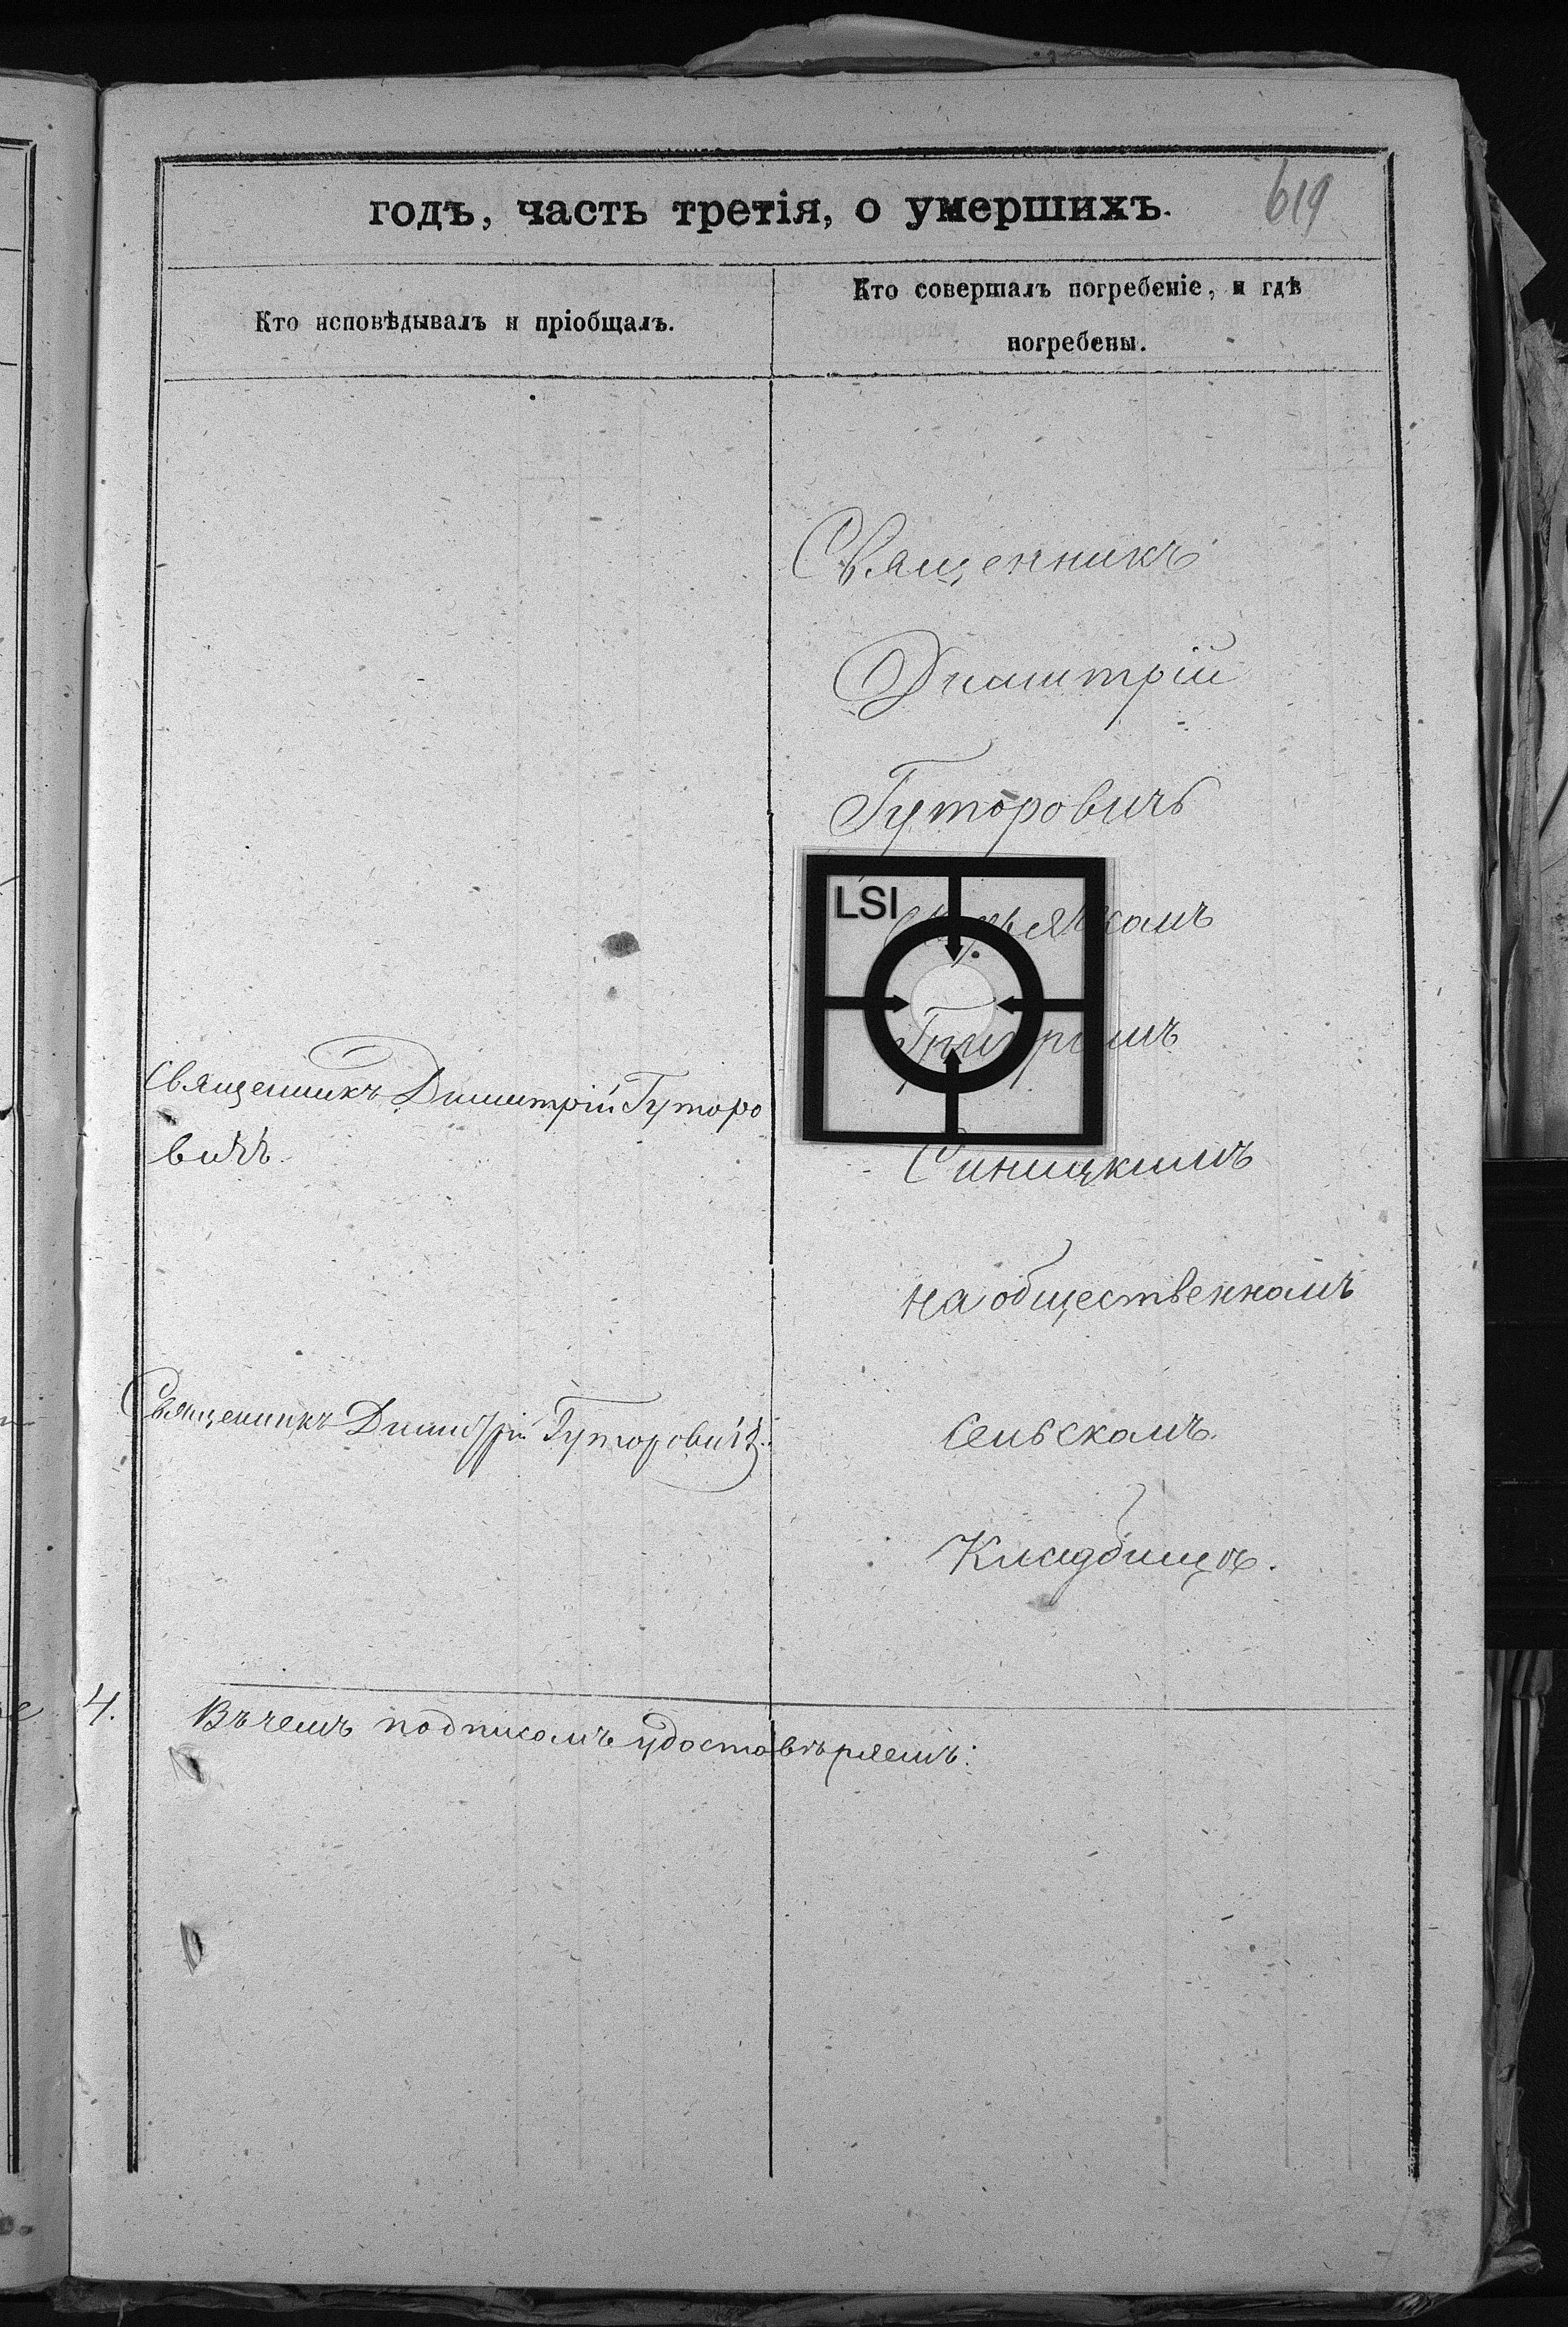 годъ, часть третія, о умершихъ.
619
Кто исповѣдывалъ и пріобщалъ.
Кто совершалъ погребеніе, и гдѣ
погребены.
Священникъ
Димитрій
Гуторовичъ
LSI
Синицкимъ
на общественномъ
сельскомъ
Кладбищѣ.
Священникъ Димитрій Гуторо
вичъ
Священникъ Димитрій Гуторовичъ.
4.
Въ чемъ подписомъ удостовѣряемъ: